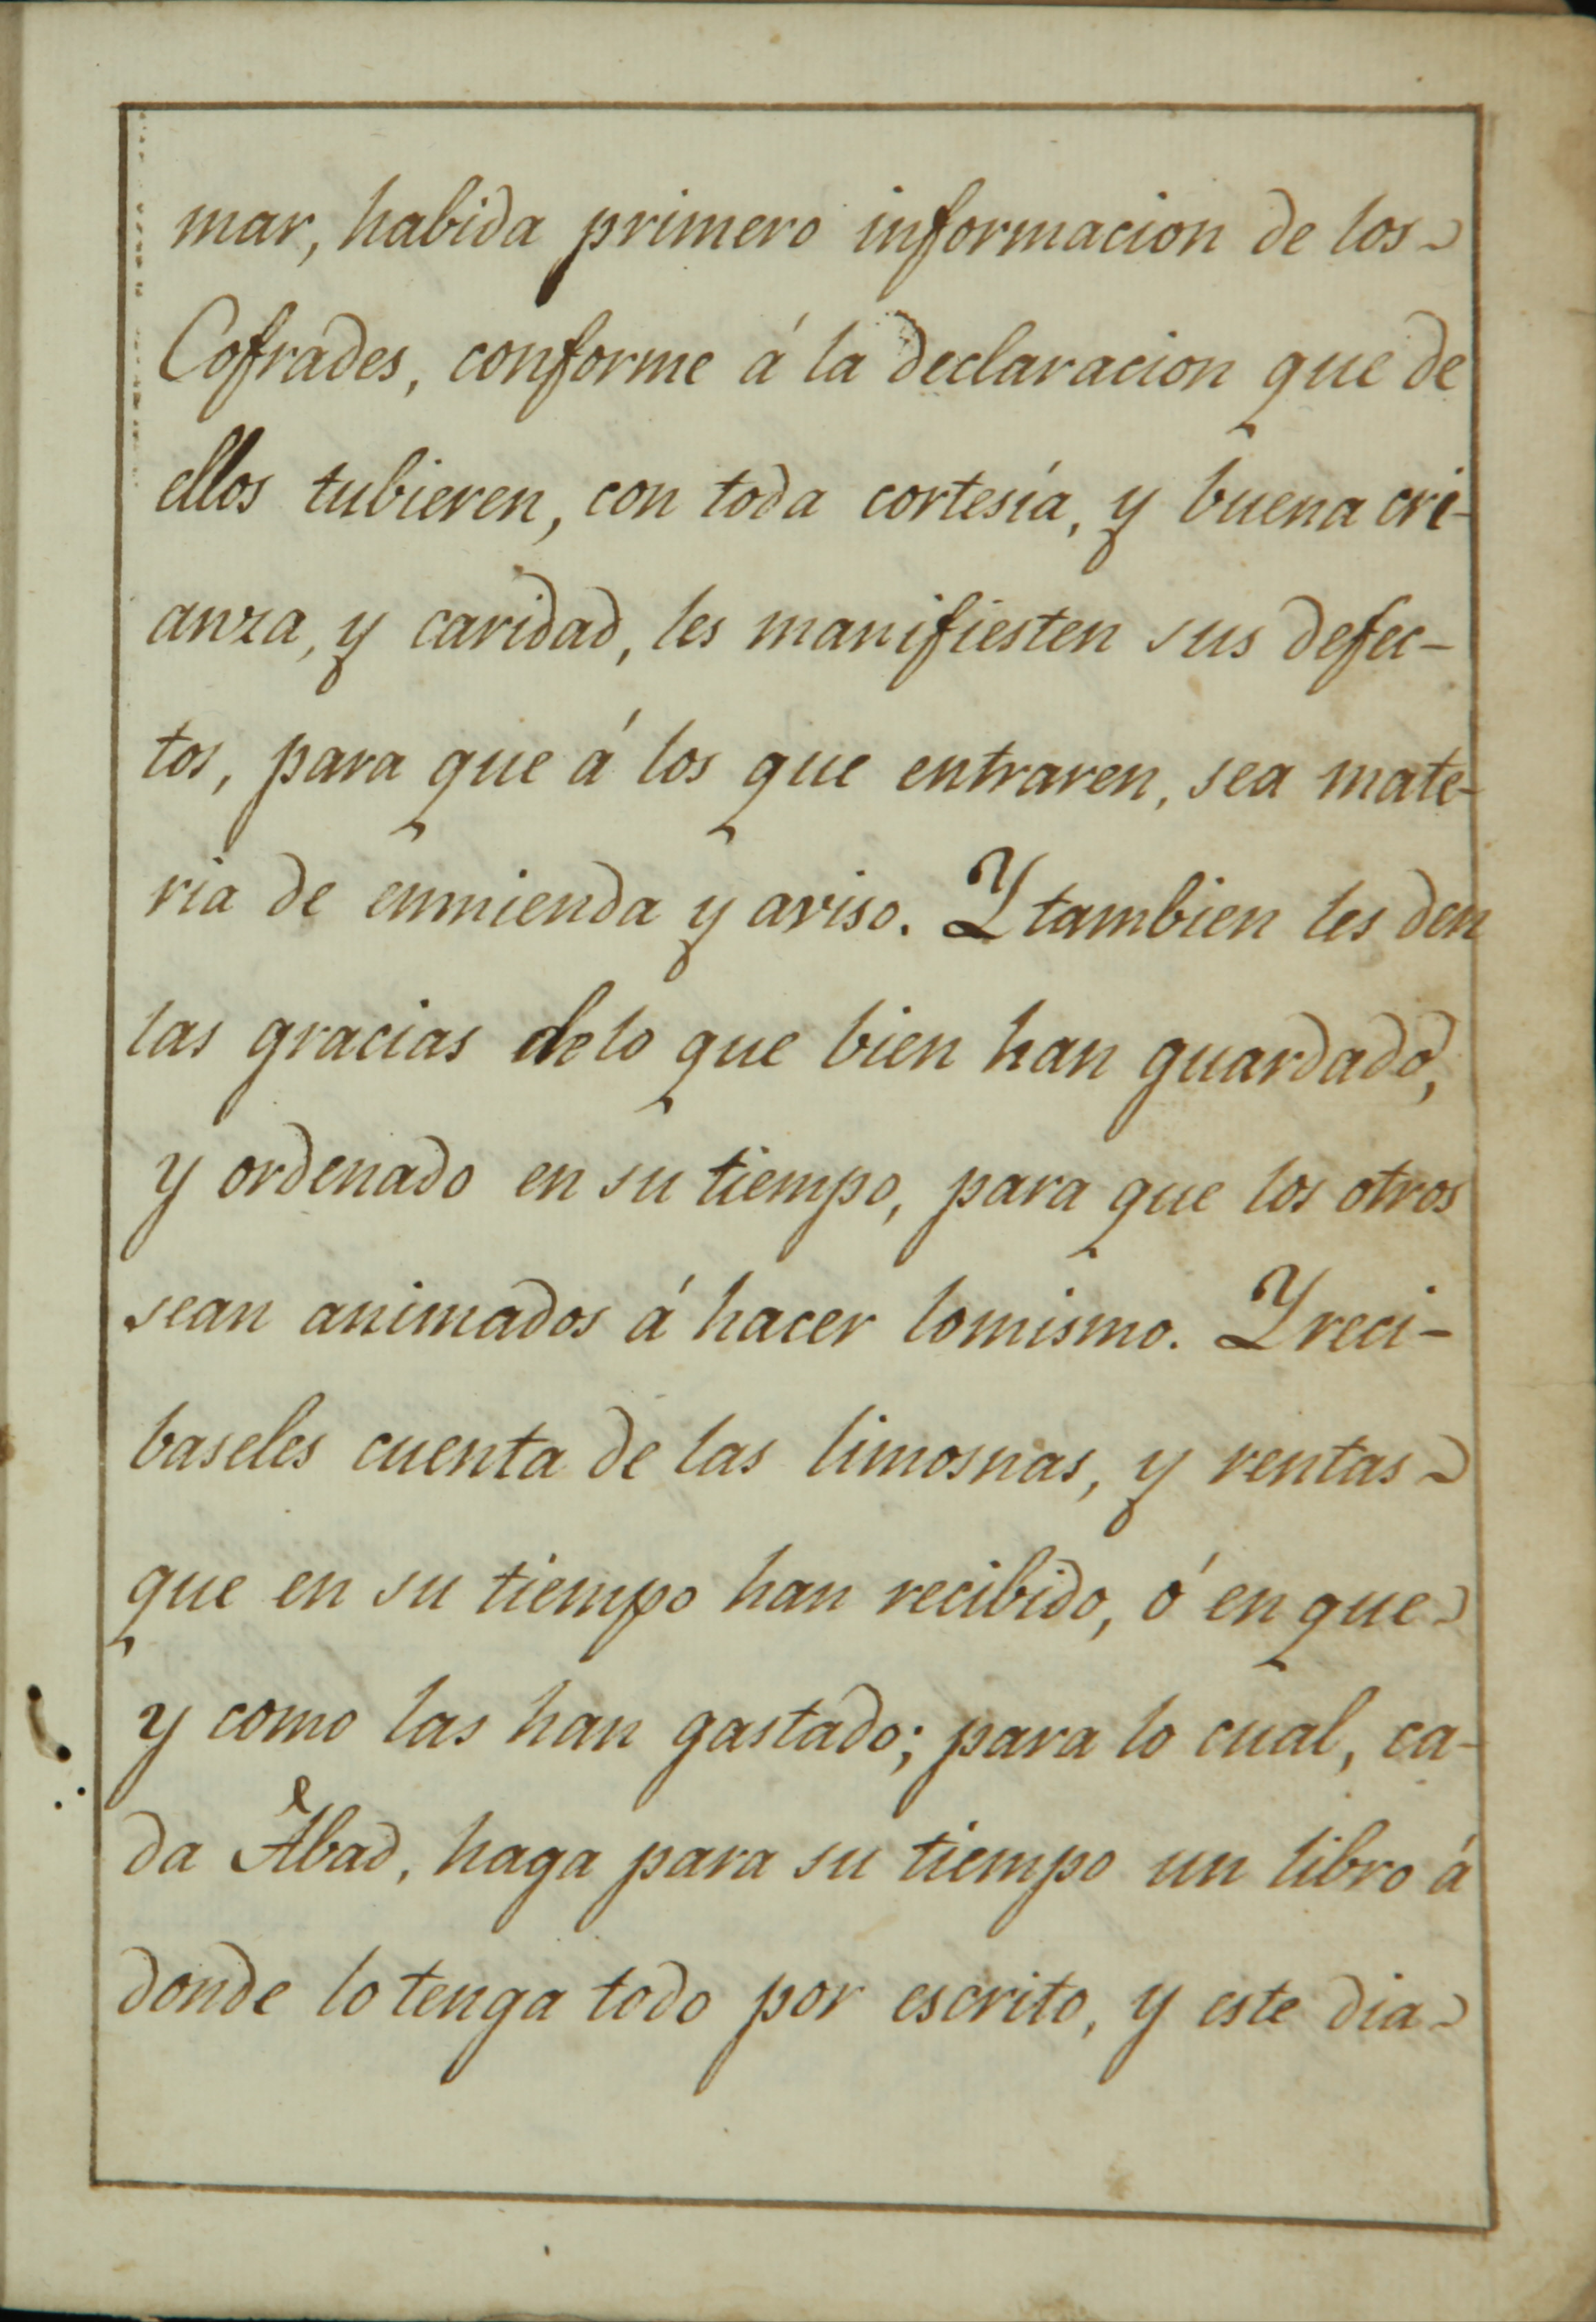 mar, habida primero informacion de los
Cofrades, conforme á la declaracion que de
ellos tubieren, con toda cortesía, y buena cri-
anza, y caridad, les manifiesten sus defec-
tos, para que á los que entraren, sea mate-
ria de enmienda y aviso. Y tambien les den
las gracias de lo que bien han guardado,
y ordenado en su tiempo, para que los otros
sean animados á hacer lo mismo. Y reci-
baseles cuenta de las limosnas, y rentas
que en su tiempo han recibido, ó en que
y como las han gastado; para lo cual, ca-
da Abad, haga para su tiempo un libro á
donde lo tenga todo por escrito, y este dia